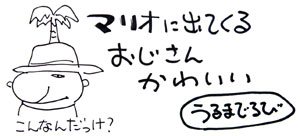 マリオに出てくる
おじさん
かわいい
うるまでるび
こんなんだっけ?